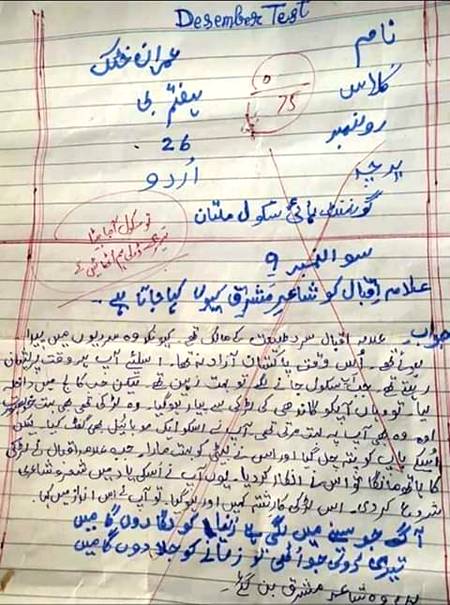 Desember Test
نام عمران خٹک
کلاس ہفتم بی
رولنمبر 26
پرچہ اردو
0
75
گورنمنٹ ہائی سکول ملتان
تو سکول آجا بیٹا
سوالنمبر 9
علامہ اقبال کو شاعر مشرق کیوں کہا جاتا ہے۔
جواب علامہ اقبال سرد طبیعت کے مالک تھے۔ کیونکہ وہ سردیوں میں پیدا
ہوئے تھے۔ اُس وقت پاکستان آزاد نہ تھا۔ اسلئے آپ ہر وقت پریشان
رہتے تھے۔ جب سکول جانے لگے تو بہت ذہین تھے۔ لیکن جب کالج میں داخلہ
لیا۔ تو وہاں آپکو گاندھی کی لڑکی سے پیار ہوگیا۔ وہ لڑکی بھی بہت خوبصورت
وہ بھی آپ پہ بہت مرتی تھی آپ نے اسکو ایک موبائیل بھی گفٹ کیا۔
اُسکے باپ کو پتہ چل گیا اور اس نے بیٹی کو بہت مارا۔ جب علامہ اقبال نے لڑکی
کا ہاتھ مانگا تو اس نے انکار کر دیا۔ یوں آپ نے اُسکی یاد میں شعر و شاعری
شروع کر دی۔ اس لڑکی کا رشتہ کہیں اور ہوگیا۔ تو آپ نے اس انداز میں کہا
آگ جو سینے میں لگی ہے زمانے کو دکھا دوں گا میں
تیری ڈولی جو اُٹھی تو زمانے کو جلا دوں گا میں
وہ شاعر مشرق بن گئے۔